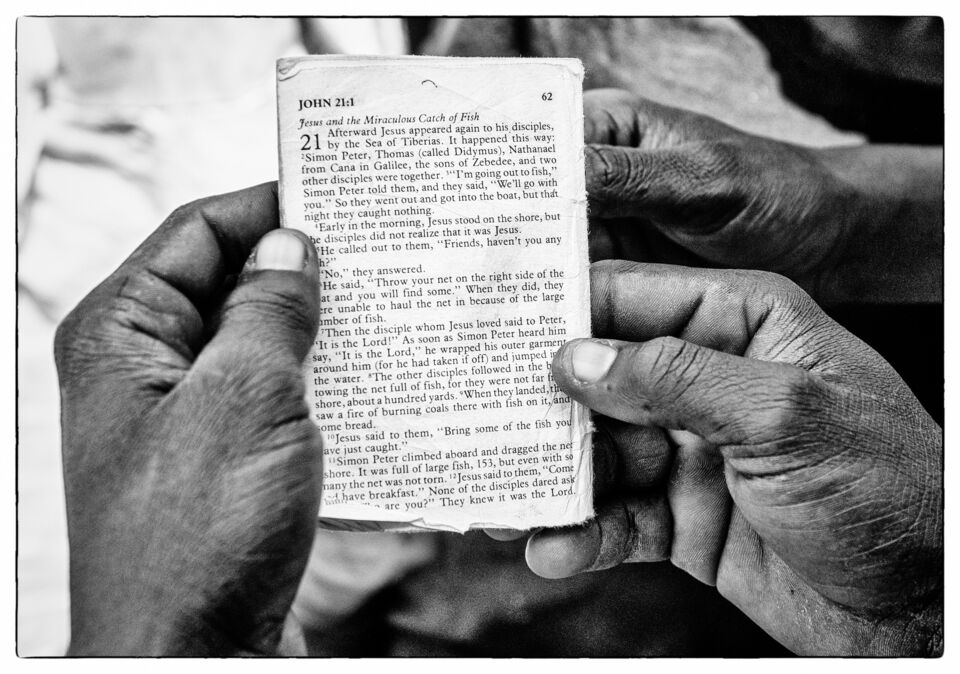 JOHN 21:1 62
Jesus and the Miraculous Catch of Fish
21 Afterward Jesus appeared again to his disciples,
by the Sea of Tiberias. It happened this way:
²Simon Peter, Thomas (called Didymus), Nathanael
from Cana in Galilee, the sons of Zebedee, and two
other disciples were together. ³"I'm going out to fish,"
Simon Peter told them, and they said, "We'll go with
you." So they went out and got into the boat, but that
night they caught nothing.
⁴Early in the morning, Jesus stood on the shore, but
he disciples did not realize that it was Jesus.
⁵He called out to them, "Friends, haven't you any
h?"
"No," they answered.
⁶He said, "Throw your net on the right side of the
at and you will find some." When they did, they
ere unable to haul the net in because of the large
mber of fish.
⁷Then the disciple whom Jesus loved said to Peter,
"It is the Lord!" As soon as Simon Peter heard him
say, "It is the Lord," he wrapped his outer garment
around him (for he had taken it off) and jumped in
the water. ⁸The other disciples followed in the b
towing the net full of fish, for they were not far f
shore, about a hundred yards. ⁹When they landed, th
saw a fire of burning coals there with fish on it, and
ome bread.
¹⁰Jesus said to them, "Bring some of the fish you
ave just caught."
¹¹Simon Peter climbed aboard and dragged the net
shore. It was full of large fish, 153, but even with so
many the net was not torn. ¹²Jesus said to them, "Come
d have breakfast." None of the disciples dared ask
are you?" They knew it was the Lord.